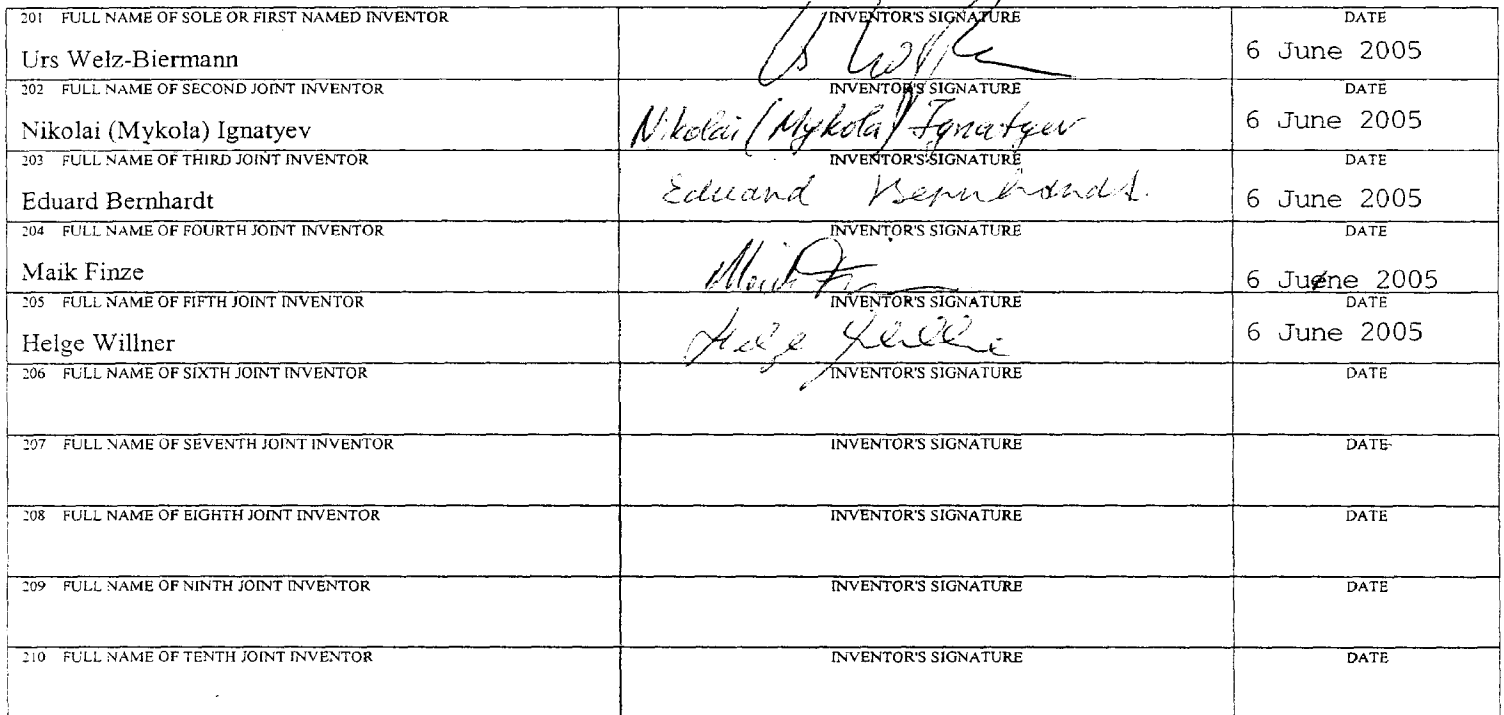 201 FULL NAME OF SOLE OR FIRST NAMED INVENTOR INVENTOR'S SIGNATURE DATE
Urs Welz-Biermann 6 June 2005
202 FULL NAME OF SECOND JOINT INVENTOR INVENTOR'S SIGNATURE DATE
Nikolai (Mykola) Ignatyev Nikolai (Mykola) Ignatyev 6 June 2005
203 FULL NAME OF THIRD JOINT INVENTOR INVENTOR'S SIGNATURE DATE
Eduard Bernhardt Eduard Bernhardt 6 June 2005
204 FULL NAME OF FOURTH JOINT INVENTOR INVENTOR'S SIGNATURE DATE
Maik Finze 6 Juene 2005
205 FULL NAME OF FIFTH JOINT INVENTOR INVENTOR'S SIGNATURE DATE
Helge Willner Helge Willner 6 June 2005
206 FULL NAME OF SIXTH JOINT INVENTOR INVENTOR'S SIGNATURE DATE
207 FULL NAME OF SEVENTH JOINT INVENTOR INVENTOR'S SIGNATURE DATE
208 FULL NAME OF EIGHTH JOINT INVENTOR INVENTOR'S SIGNATURE DATE
209 FULL NAME OF NINTH JOINT INVENTOR INVENTOR'S SIGNATURE DATE
210 FULL NAME OF TENTH JOINT INVENTOR INVENTOR'S SIGNATURE DATE